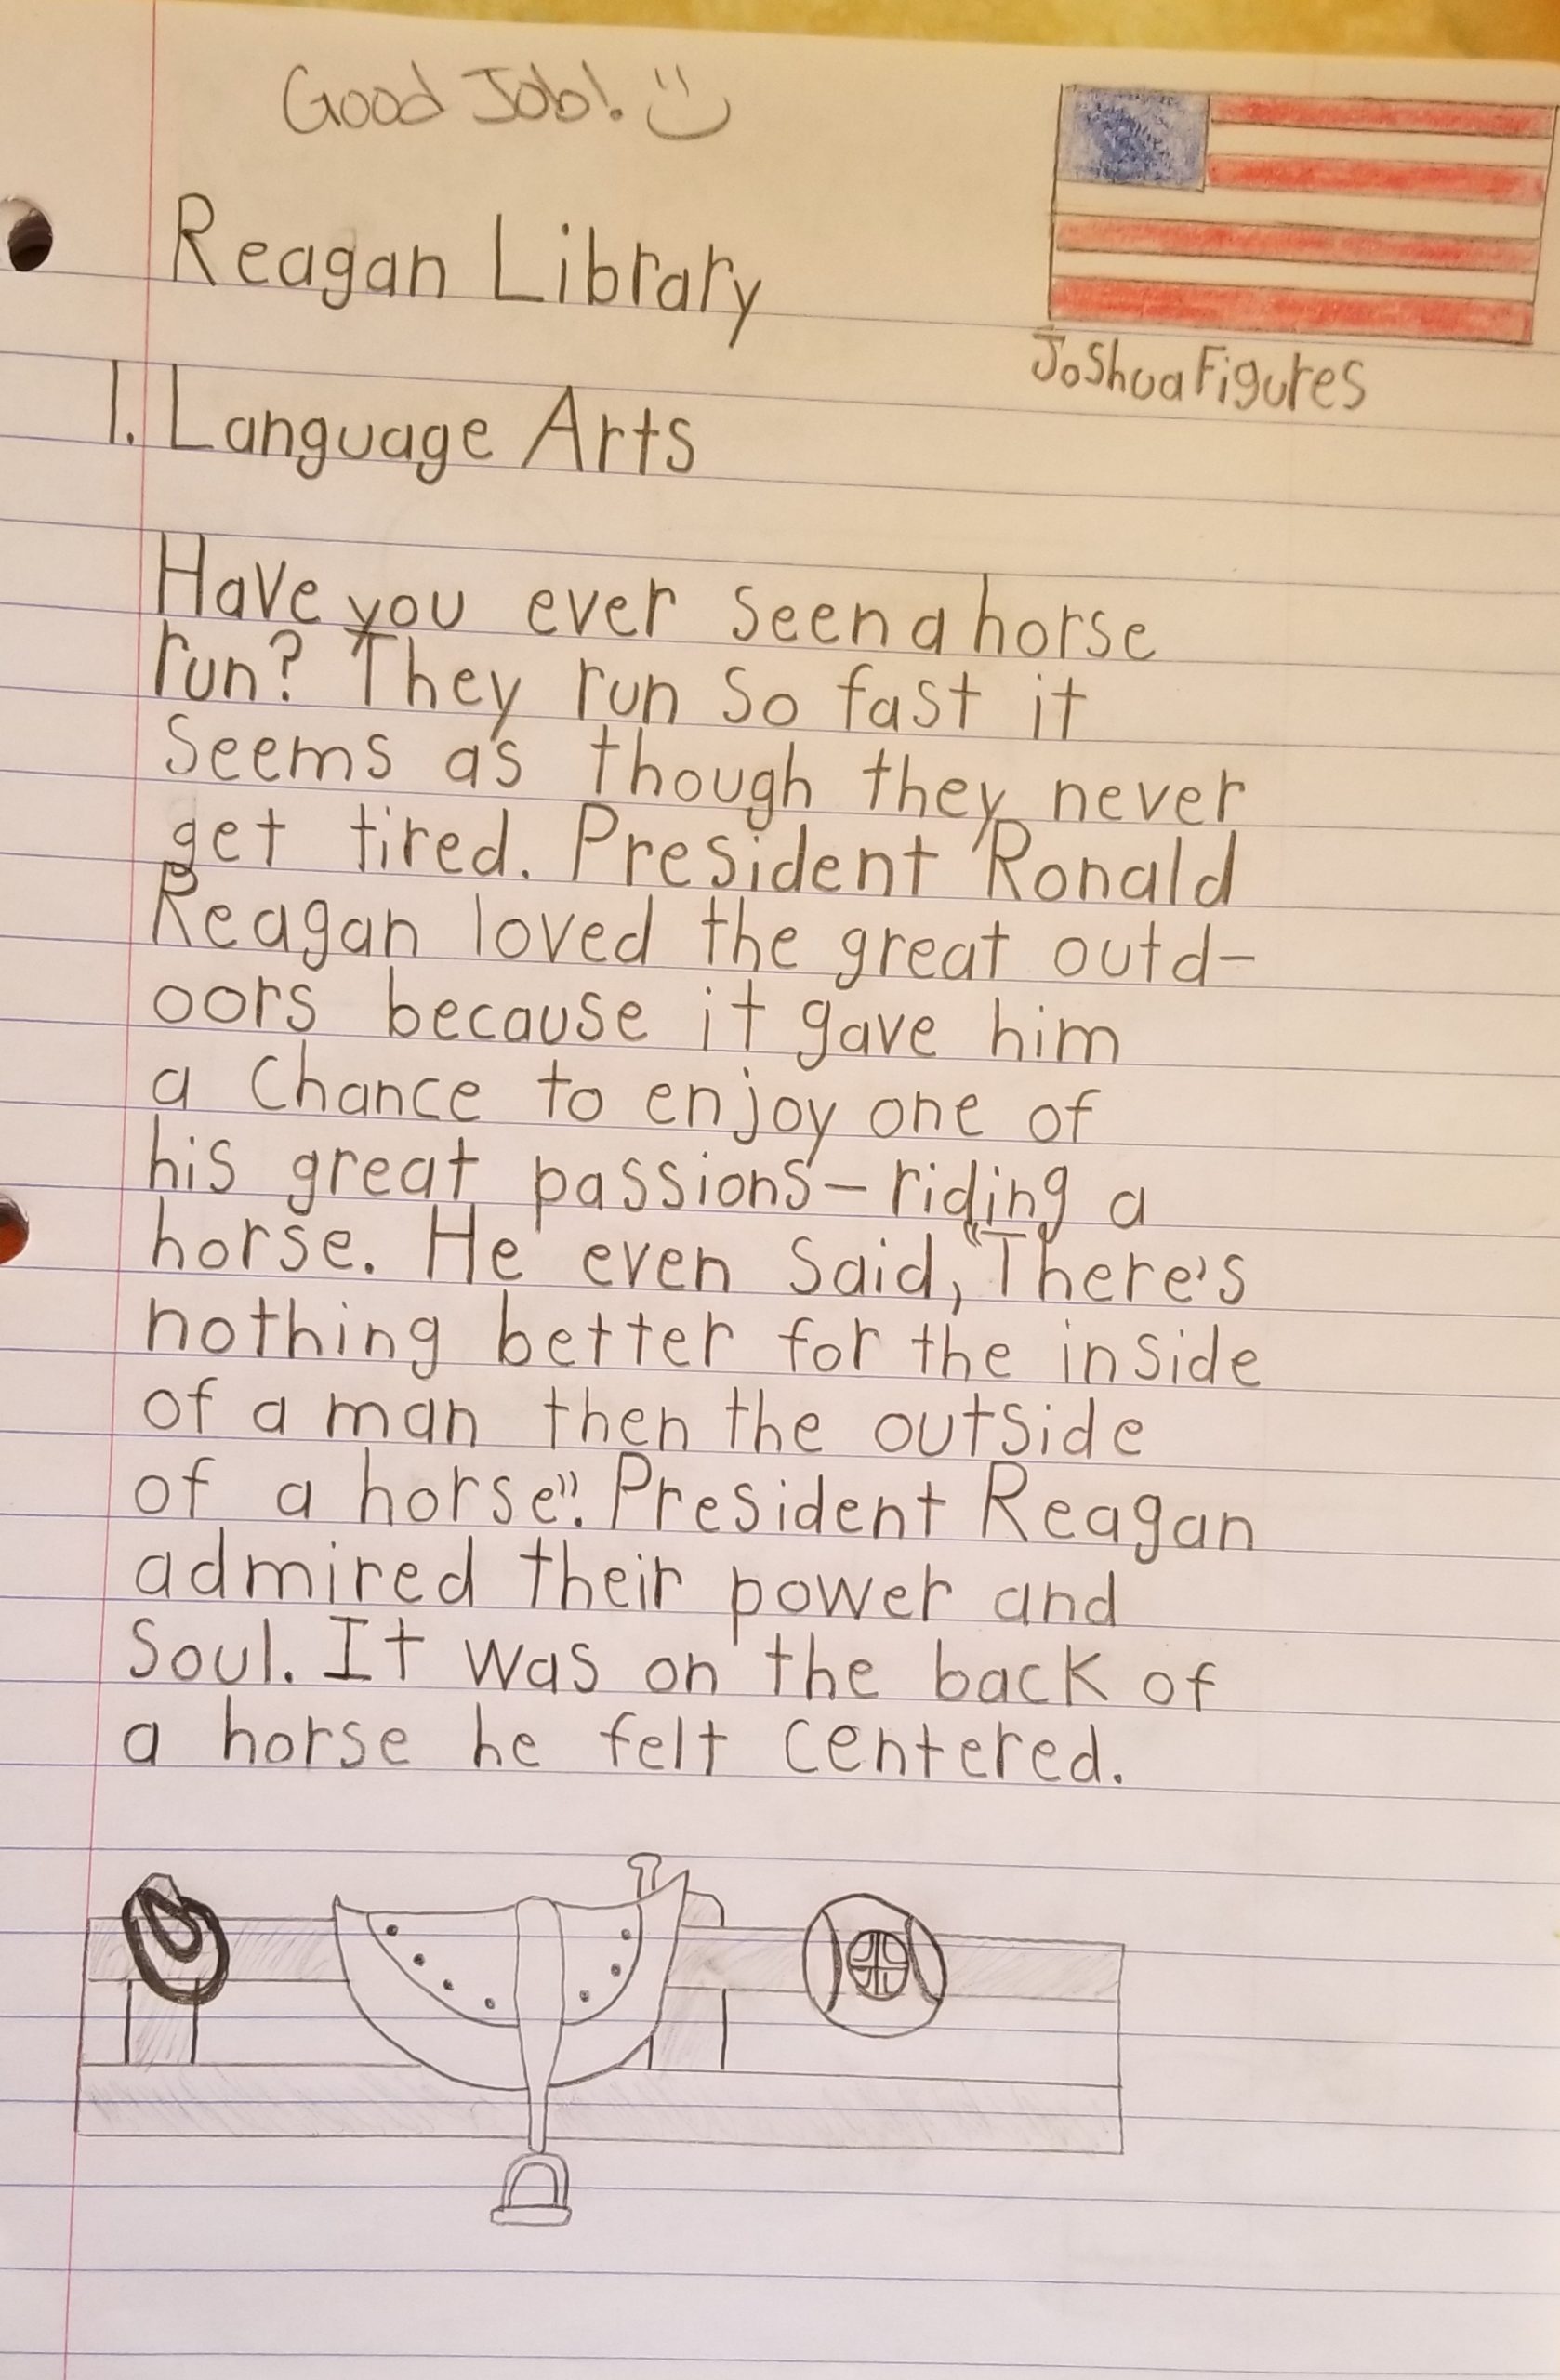 Good Job! :)
Reagan Library
Joshua Figures
1. Language Arts
Have you ever seen a horse
run? They run so fast it
seems as though they never
get tired. President Ronald
Reagan loved the great outd-
oors because it gave him
a chance to enjoy one of
his great passions-riding a
horse. He even said, "There's
nothing better for the inside
of a man then the outside
of a horse". President Reagan
admired their power and
soul. It was on the back of
a horse he felt centered.